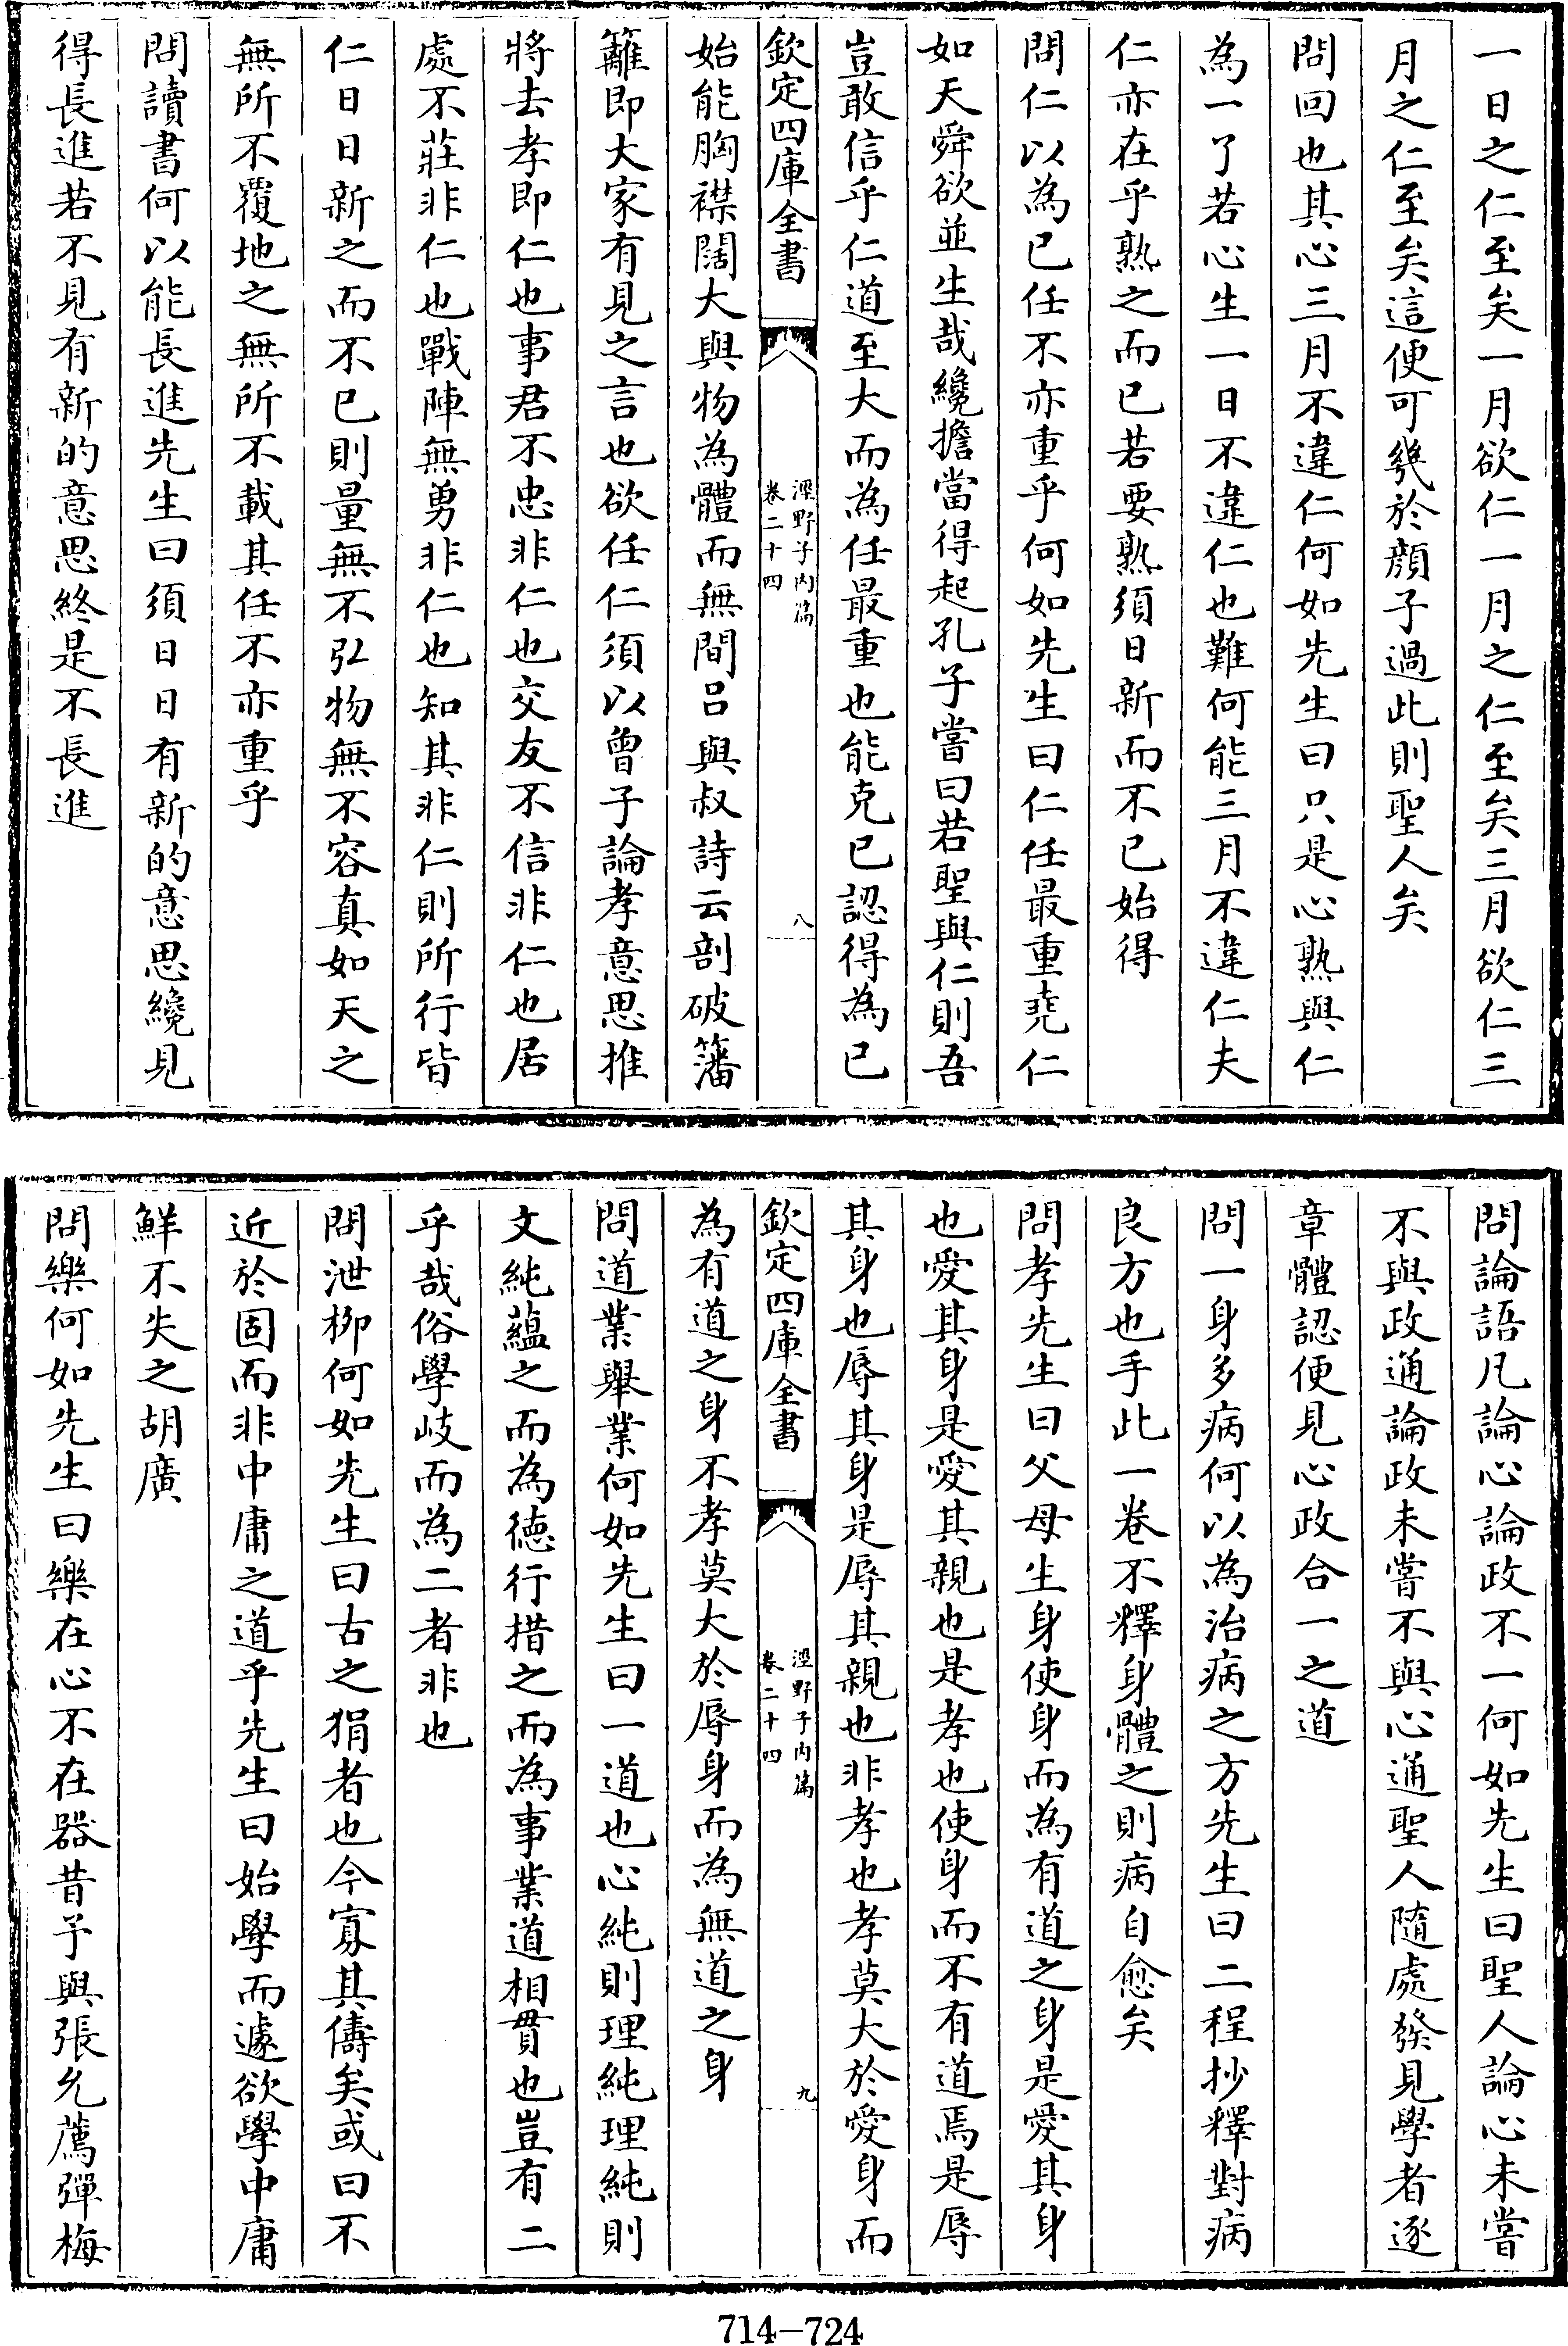 一日之仁至矣一月欲仁一月之仁至矣三月欲仁三
月之仁至矣這便可幾於顔子過此則聖人矣
問回也其心三月不違仁何如先生曰只是心熟與仁
為一了若心生一日不違仁也難何能三月不違仁夫
仁亦在乎熟之而已若要熟須日新而不已始得
問仁以為己任不亦重乎何如先生曰仁任最重堯仁
如天舜欲並生哉纔擔當得起孔子嘗曰若聖與仁則吾
豈敢信乎仁道至大而為任最重也能克己認得為己
欽定四庫全書
涇野子内篇
卷二十四
八
始能胸襟闊大與物為體而無間呂與叔詩云剖破籓
籬即大家有見之言也欲任仁須以曾子論孝意思推
將去孝即仁也事君不忠非仁也交友不信非仁也居
處不莊非仁也戰陣無勇非仁也知其非仁則所行皆
仁日日新之而不已則量無不弘物無不容真如天之
無所不覆地之無所不載其任不亦重乎
問讀書何以能長進先生曰須日日有新的意思纔見
得長進若不見有新的意思終是不長進
問論語凡論心論政不一何如先生曰聖人論心未嘗
不與政通論政未嘗不與心通聖人隨處發見學者逐
章體認便見心政合一之道
問一身多病何以為治病之方先生曰二程抄釋對病
良方也手此一卷不釋身體之則病自愈矣
問孝先生曰父母生身使身而為有道之身是愛其身
也愛其身是愛其親也是孝也使身而不有道焉是辱
其身也辱其身是辱其親也非孝也孝莫大於愛身而
欽定四庫全書
涇野子内篇
卷二十四
九
為有道之身不孝莫大於辱身而為無道之身
問道業舉業何如先生曰一道也心純則理純理純則
文純蘊之而為徳行措之而為事業道相貫也豈有二
乎哉俗學歧而為二者非也
問泄柳何如先生曰古之狷者也今寡其儔矣或曰不
近於固而非中庸之道乎先生曰始學而遽欲學中庸
鮮不失之胡廣
問樂何如先生曰樂在心不在器昔予與張允薦彈梅
714-724